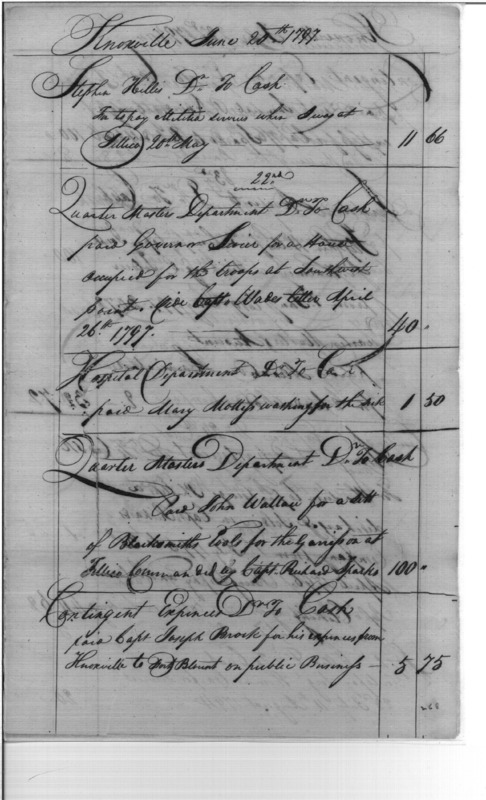 Knoxville June 20th 1797
Stephen Hilles Dr To Cash
to pay Militia services when I was at
Tellico 20th May 11 66
22nd
Quarter Masters Department Dr To Cash
paid Governor Sevier for a House
occupied for the troops at Southwest
point, Vide Capt Wades letter April
26th 1797. 40
Hospital Department Dr To Cash
paid Mary washing for the sick 1 50
Quarter Masters Department Dr To Cash
Paid John Wallace for a sett
of Blacksmiths Tools for the Garrison at
Tellico Commanded by Capt. Richard Sparks 100
Contingent Expences Dr To Cash
paid Capt Joseph Brock for his expences from
Knoxville to Fort Blount on public Business 5 75